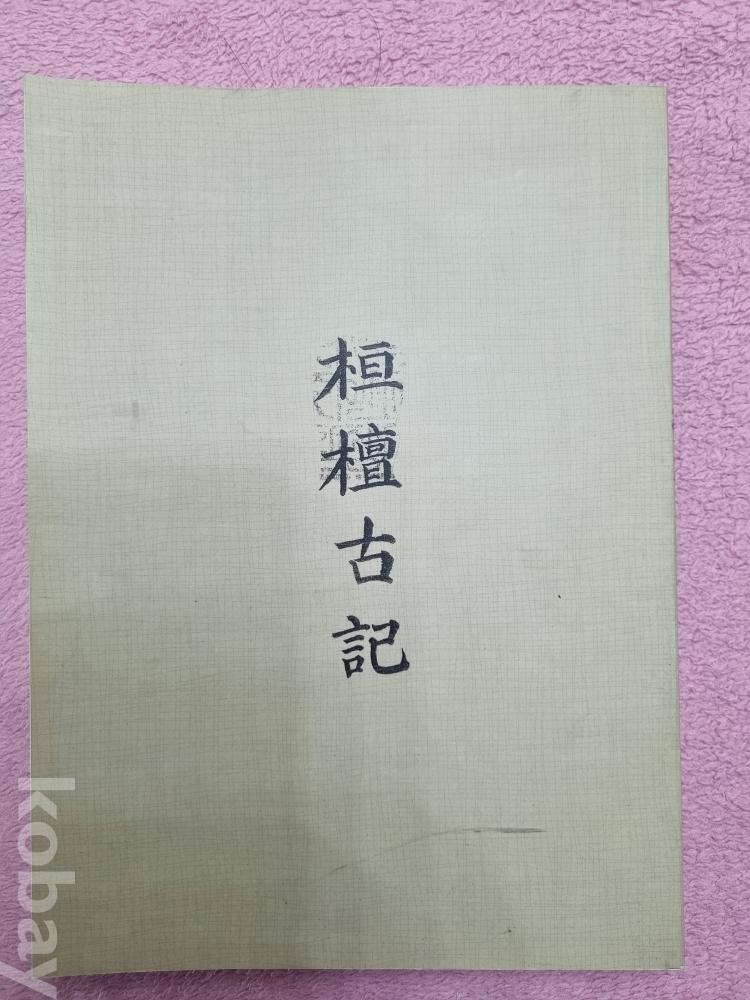 桓檀古記
kobay